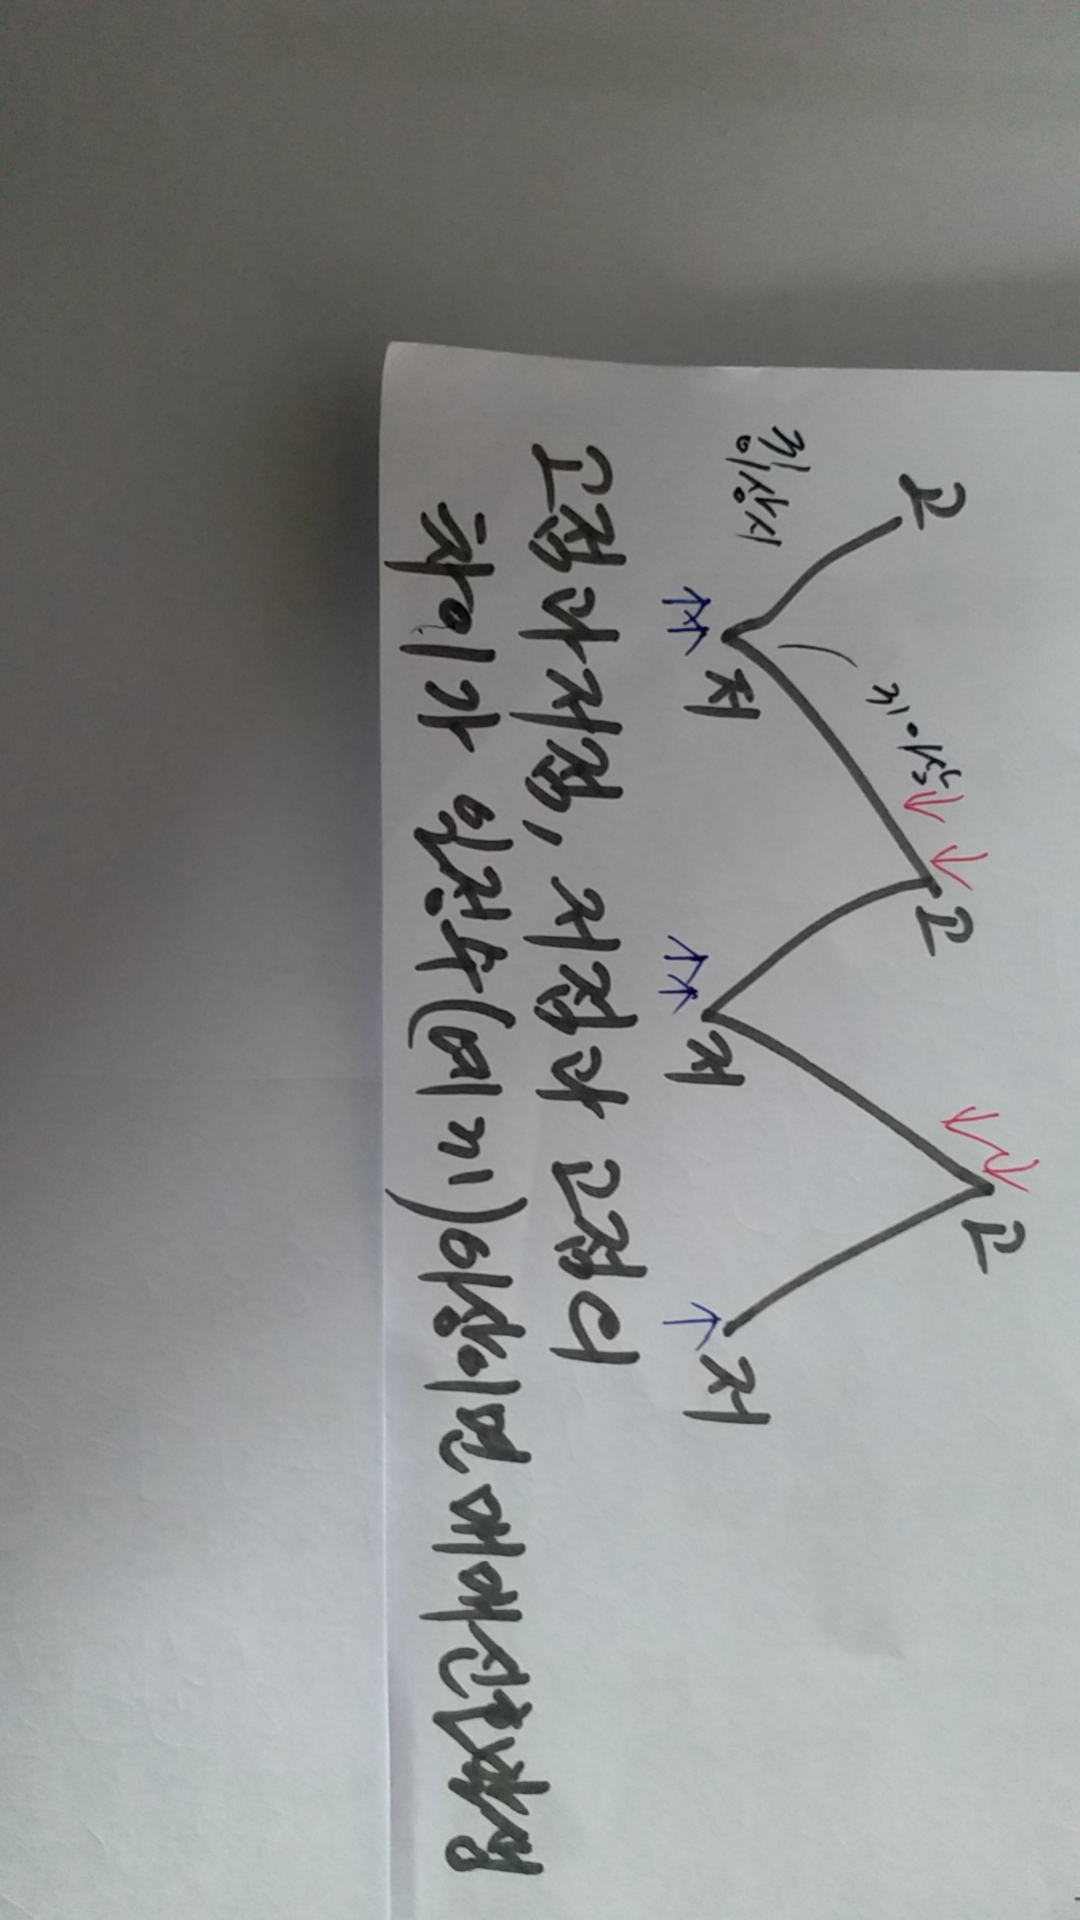 고 고 고
이상
이상시
저 저 저
고점과저점, 저점과 고점의
차이가 일정수( )이상이면 매매신호발생